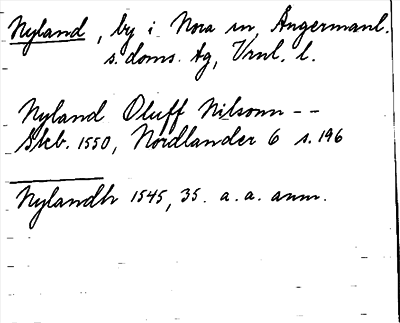 Nyland, by i Nora sn, Ångermanl.
s. doms. tg, Vrnl. l.
Nyland Oluff Nilsonn - -
Skb. 1550, Nordlander 6 s. 196
Nylandh 1545, 35. a. a. anm.